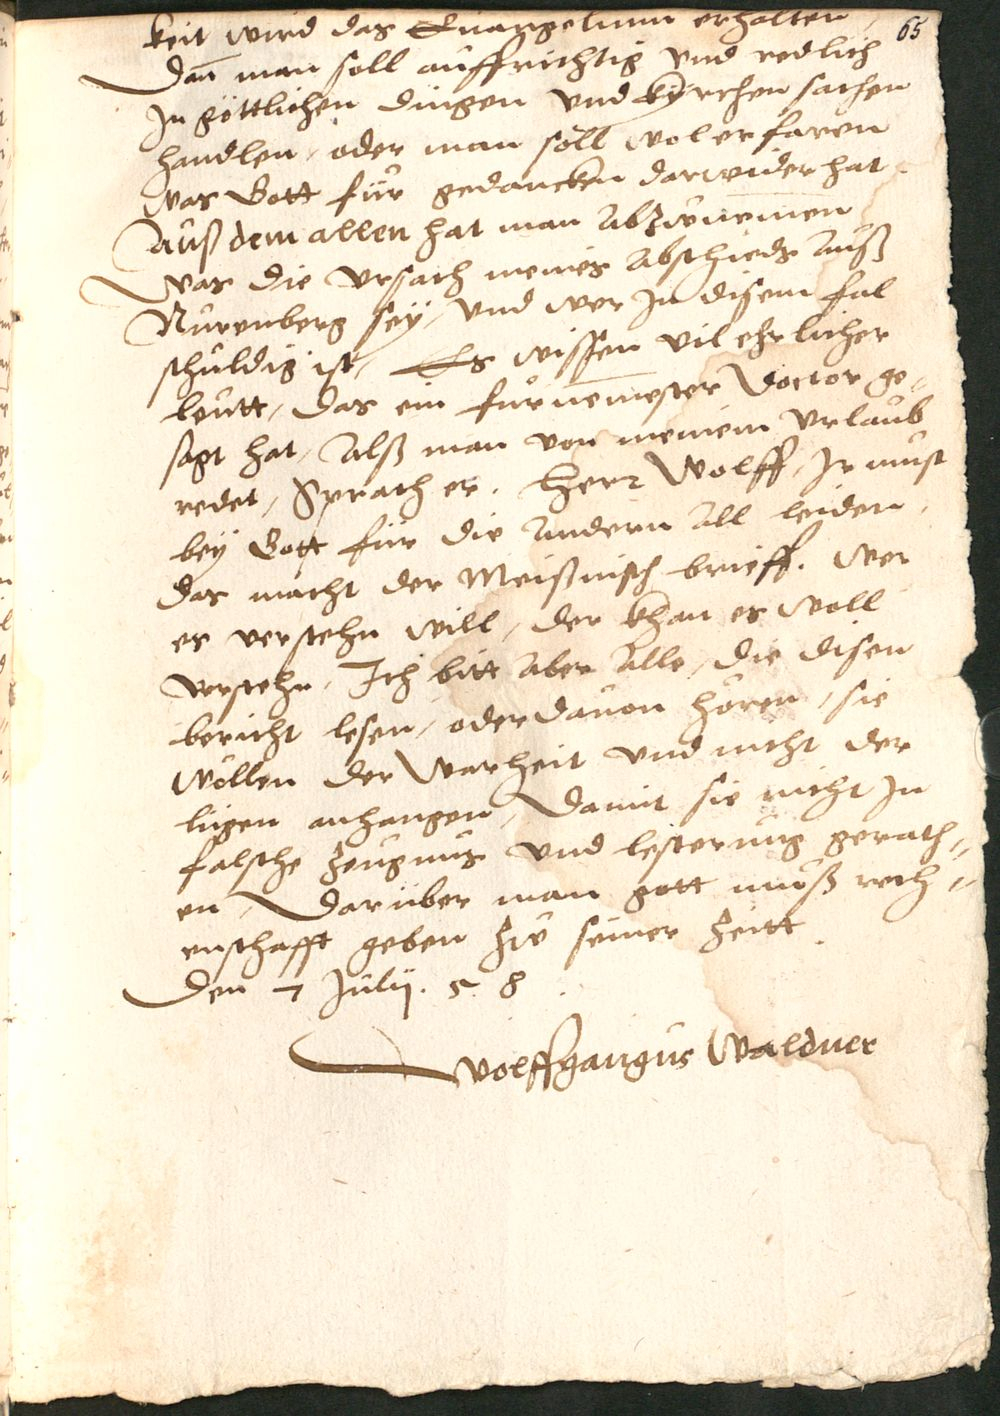 65
keit wird das Euangelium erhalten,
Dan̄ man soll auffrichtig vnd redlich
In göttlichen dingen vnd kyrchen sachen
handlen, oder man soll wol erfaren
was Gott für gedancken darwider hat.
Auß dem allen hat man abzunemen
Was die vrsach meines abschieds auß
Nürenberg sey, vnd wer In disem fal
schuldig ist, Es wissen vil ehrlicher
leutt, das ein fürnemester Doctor ge-
sagt hat, Alß man von meinem vrlaub
redet, Sprach er. Herr Wolff, Ir must
bey Gott für die andern all leiden,
das macht der Meißnisch brieff. Wer
es verstehn will, der khan es woll
verstehn, Ich bitt aber alle, die disen
bericht lesen, oder dauon hören, sie
wöllen der Warheit vnd nicht der
lügen anhangen, Damit sie nicht In
falsche zeugnus vnd lesterung gerath-
en, Darüber man gott muß rech-
enschafft geben zu seiner zeitt.
Den 7 Julij. 58.
Wolffgangus Waldner